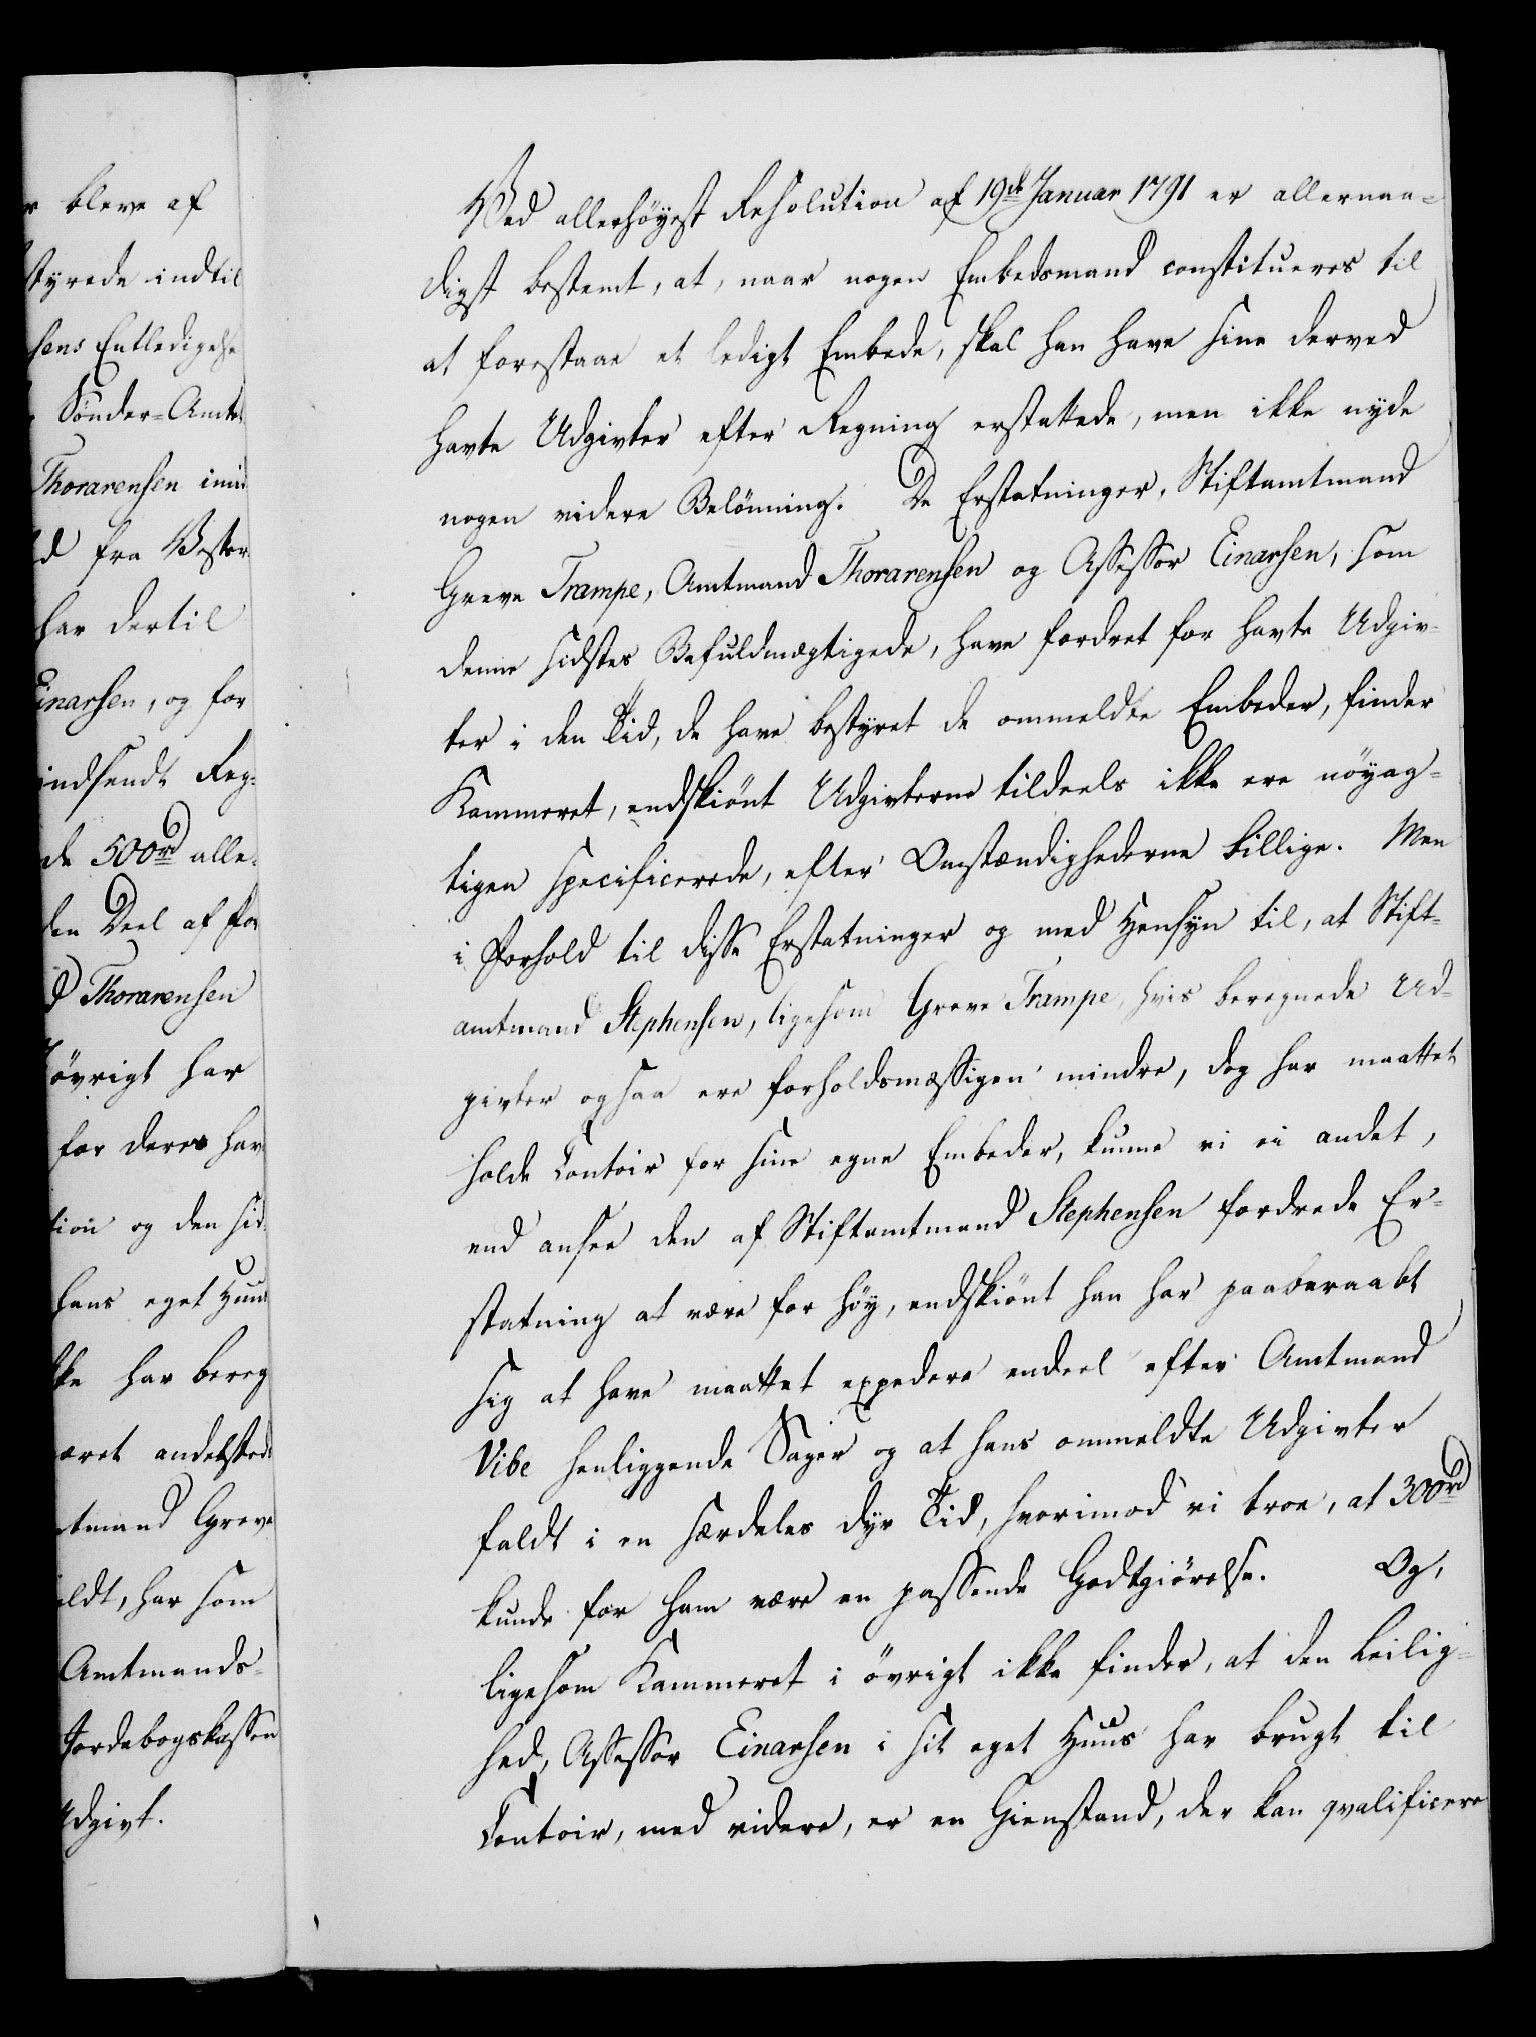 bleve af
styrede indtil
sens Entledigelse
Sönder-Amtet
Thorarensen imid
d fra Vester
har dertil
Einarsen, og for
indsendt Reg-
de 500rd alle-
den Deel af for
d Thorarensen
övrigt har
for deres hav
tion og den sid-
hans eget Huus
ke har bereg
æret andetsteds
tmand Greve
ldt, har som
Amtmands-
Jordebogskassen
Udgivt.
Ved allerhöyest Resolution af 19de Januar 1791 er allernaa-
digst bestemt, at, naar nogen Embedsmand constitueres til
at forestaae et ledigt Embede, skal han have sine derved
havte Udgivter efter Regning erstattede, men ikke nyde
nogen videre Belönning. De Erstatninger, Stiftamtmand
Greve Trampe, Amtmand Thorarensen og Assessor Einarsen, som
denne sidstes Befuldmægtigede, have fordret for havte Udgiv-
ter i den Tid, de have bestyret de ommeldte Embeder, finder
Kammeret, endskiönt Udgivterne tildeels ikke ere nöyag-
tigen specificerede, efter Omstændighederne billige. Men
i Forhold til disse Erstatninger og med Hensyn til, at Stift-
amtmand Stephensen, ligesom Greve Trampe, hvis beregnede Ud-
givter ogsaa ere forholdsmæssigen mindre, dog har maattet
holde Contoir for sine egne Embeder, kunne vi ei andet,
end ansee den af Stiftamtmand Stephensen fordrede Er-
statning at være for höy, endskiönt han har paaberaabt
sig at have maattet expedere endeel efter Amtmand
Vibe henliggende Sager og at hans ommeldte Udgivter
faldt i en særdeles dyr Tid, hvorimod vi troe, at 300rd
kunde for ham være en passende Godtgiörelse. Og,
ligesom Kammeret i övrigt ikke finder, at den Leilig-
hed, Assessor Einarsen i sit eget Huus har brugt til
Contoir, med videre, er en Gienstand, der kan qvalificere